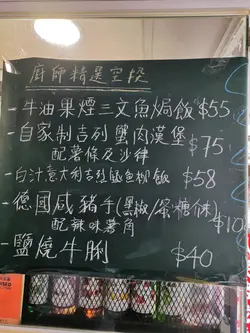 廚師精選空投
- 牛油果煙三文魚焗飯 $55
- 自家制吉列蟹肉漢堡 $75
配薯條及沙律
- 白汁意大利吉列魚柳飯 $58
- 德國咸豬手(黑椒/蜜糖
配辣味薯角
- 鹽燒牛脷 $40